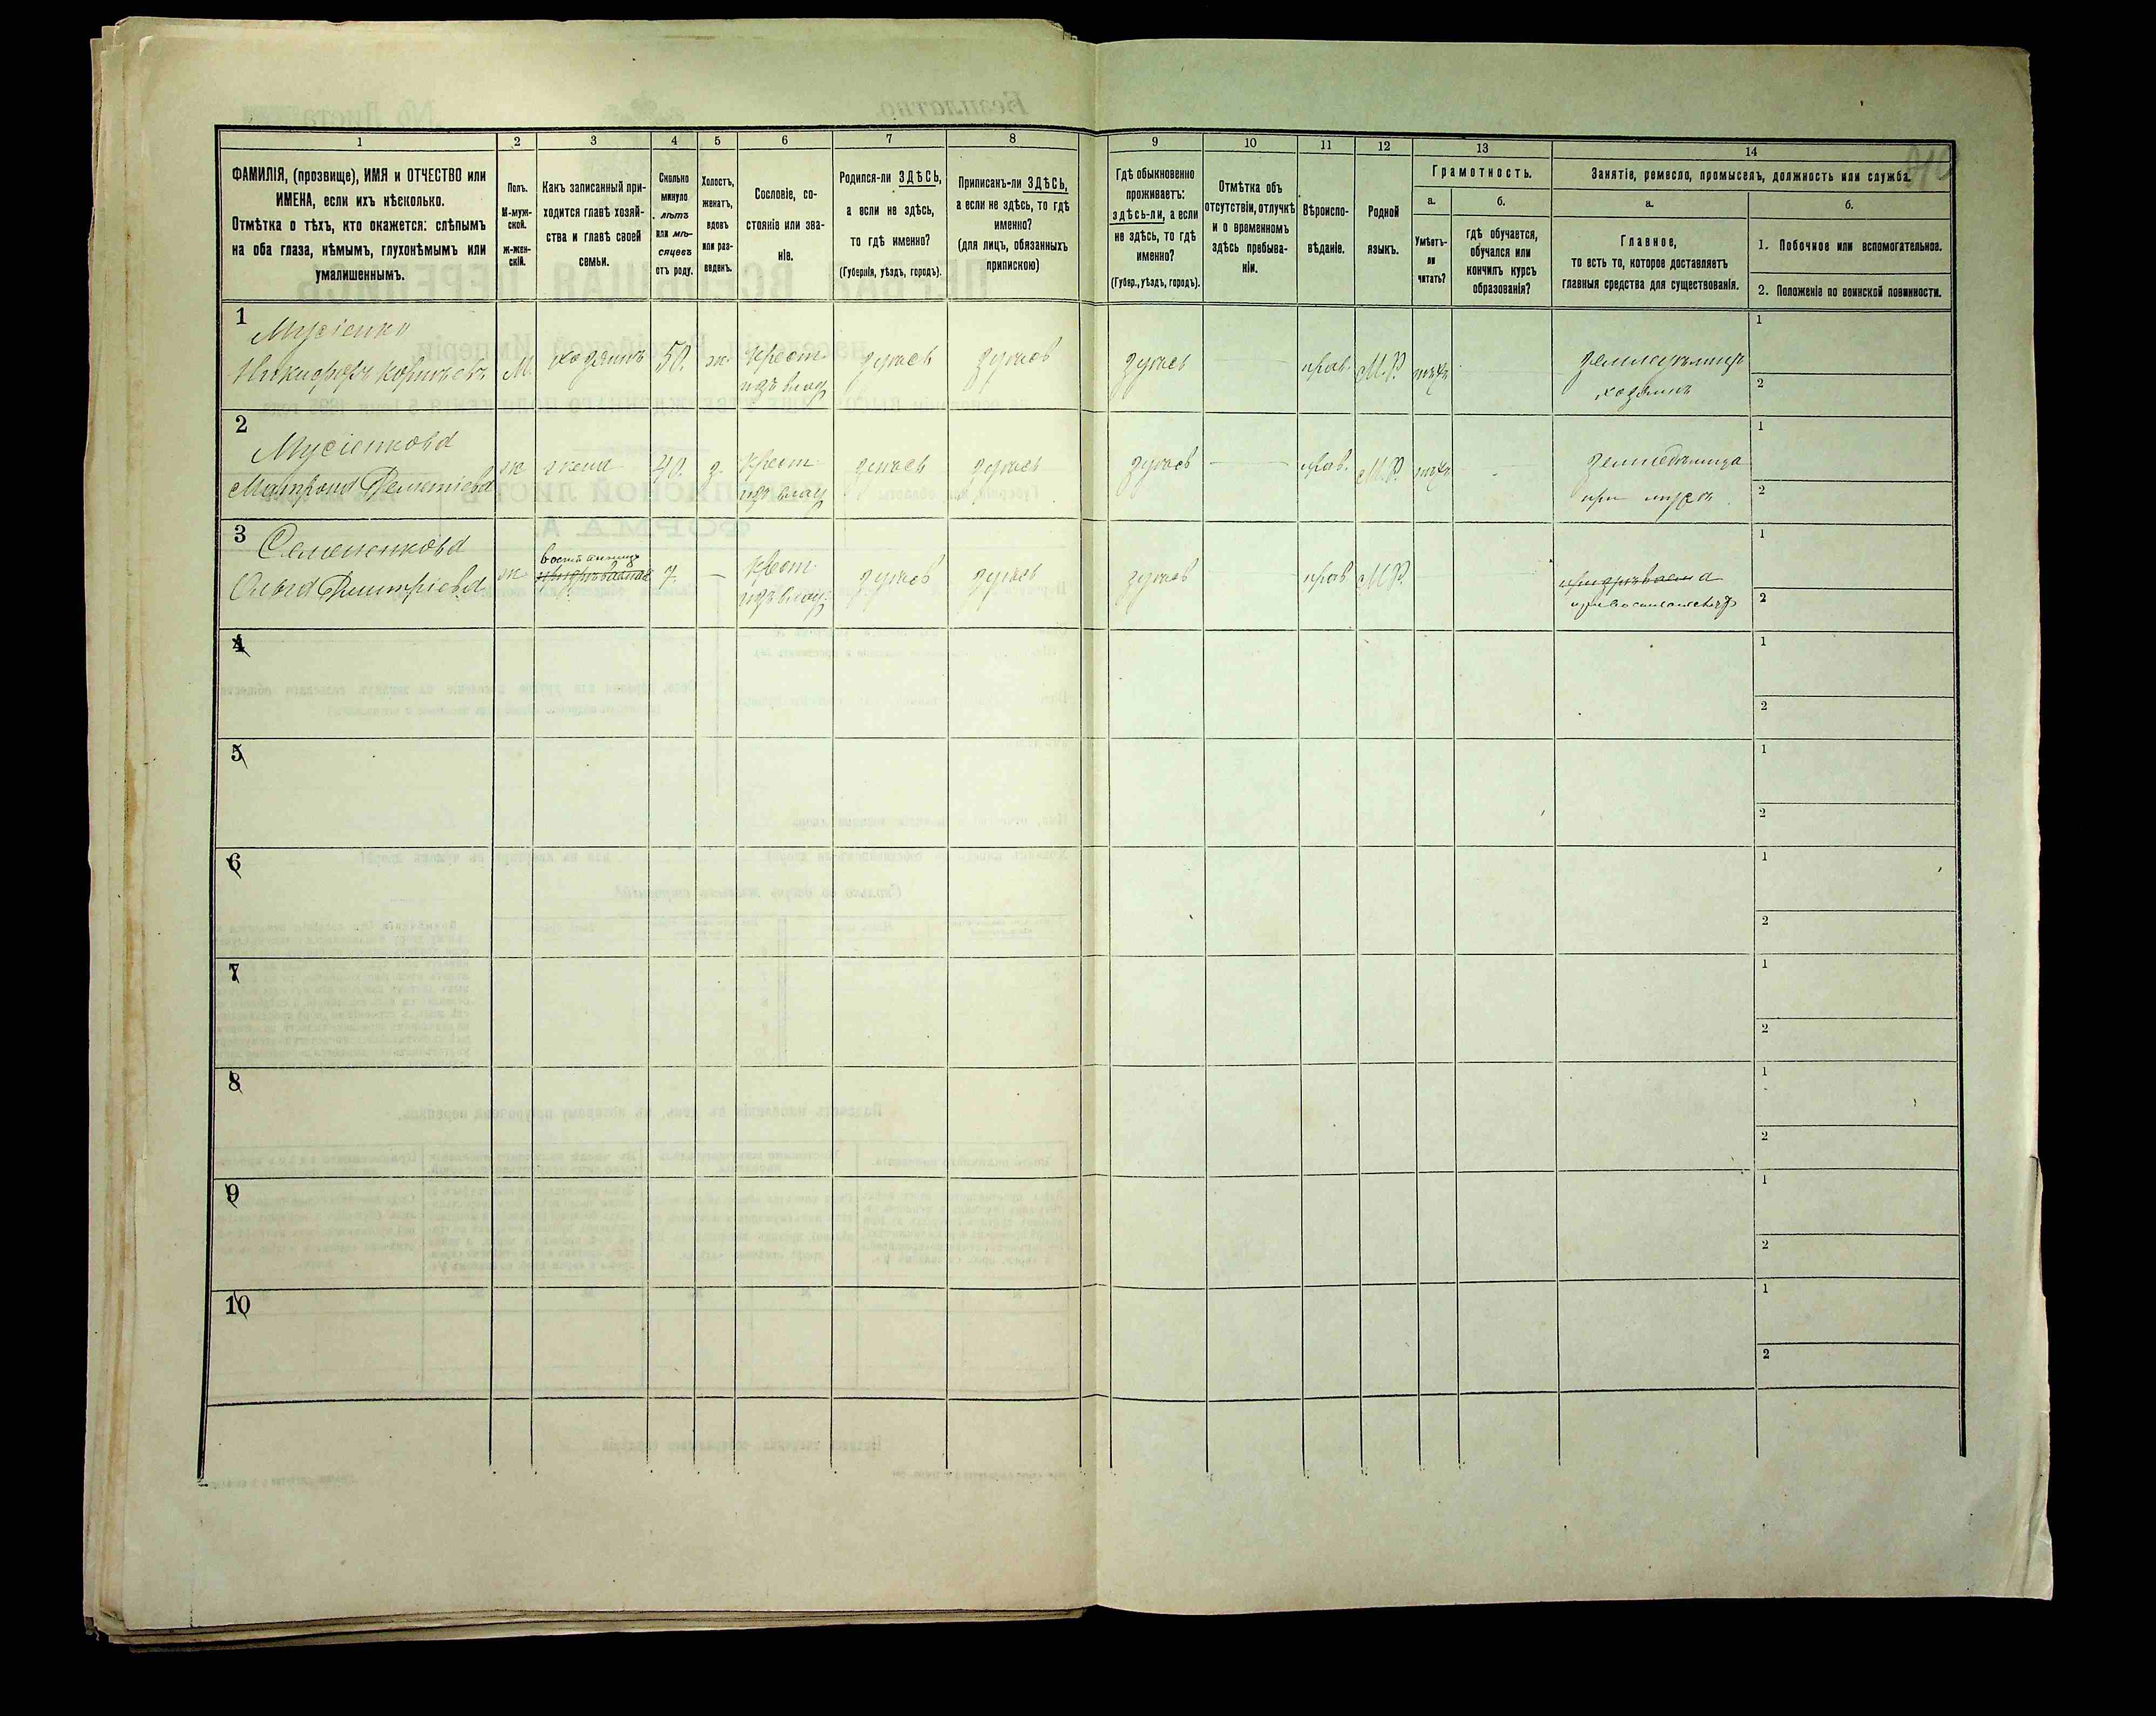 1
2
3
4
5
6
7
8
ФАМИЛІЯ, (прозвище), ИМЯ и ОТЧЕСТВО или
ИМЕНА, если ихъ нѣсколько.
Отмѣтка о тѣхъ, кто окажется: слѣпымъ
на оба глаза, нѣмымъ, глухонѣмымъ или
умалишеннымъ.
Полъ.
М-муж-
ской.
ж-жен-
скій.
Какъ записанный при-
ходится главѣ хозяй-
ства и главѣ своей
семьи.
Сколько
минуло
лѣтъ
или мѣ-
сяцевъ
отъ роду.
Холостъ,
женатъ,
вдовъ
или раз-
веденъ.
Сословіе, со-
стояніе или зва-
ніе.
Родился-ли ЗДѢСЬ,
а если не здѣсь,
то гдѣ именно?
(Губернія, уѣздъ, городъ).
Приписанъ-ли ЗДѢСЬ,
а если не здѣсь, то гдѣ
именно?
(для лицъ, обязанныхъ
припискою)
9
10
11
12
13
14
Гдѣ обыкновенно
проживаетъ:
здѣсь-ли, а если
не здѣсь, то гдѣ
именно?
(Губер., уѣздъ, городъ).
Отмѣтка объ
отсутствіи, отлучкѣ
и о временномъ
здѣсь пребыва-
ніи.
Вѣроиспо-
вѣданіе.
Родной
языкъ.
Грамотность.
а.
Умѣетъ-
ли
читать?
б.
гдѣ обучается,
обучался или
кончилъ курсъ
образованія?
Занятіе, ремесло, промыселъ, должность или служба.
а.
Главное,
то есть то, которое доставляетъ
главныя средства для существованія.
б.
1. Побочное или вспомогательное.
2. Положеніе по воинской повинности.
1
Мусіенко
Никифоръ Корнѣевъ М. хозяинъ 50. ж. крест. здѣсь здѣсь здѣсь — прав. М.Р. нѣтъ — земледѣлецъ 1
изъ влад. хозяинъ 2
2
Мусіенкова
Матрона Дементіева ж жена 40. з. крест. здѣсь здѣсь здѣсь — прав. М.Р. нѣтъ - земледѣлица 1
изъ влад. при мужѣ 2
3
Семененкова
Ольга Дмитріева ж 7. — крест. здѣсь здѣсь здѣсь — прав М.Р. 1
изъ влад. 2
4
1
2
5
1
2
6
1
2
7
1
2
8
1
2
9
1
2
10
1
2